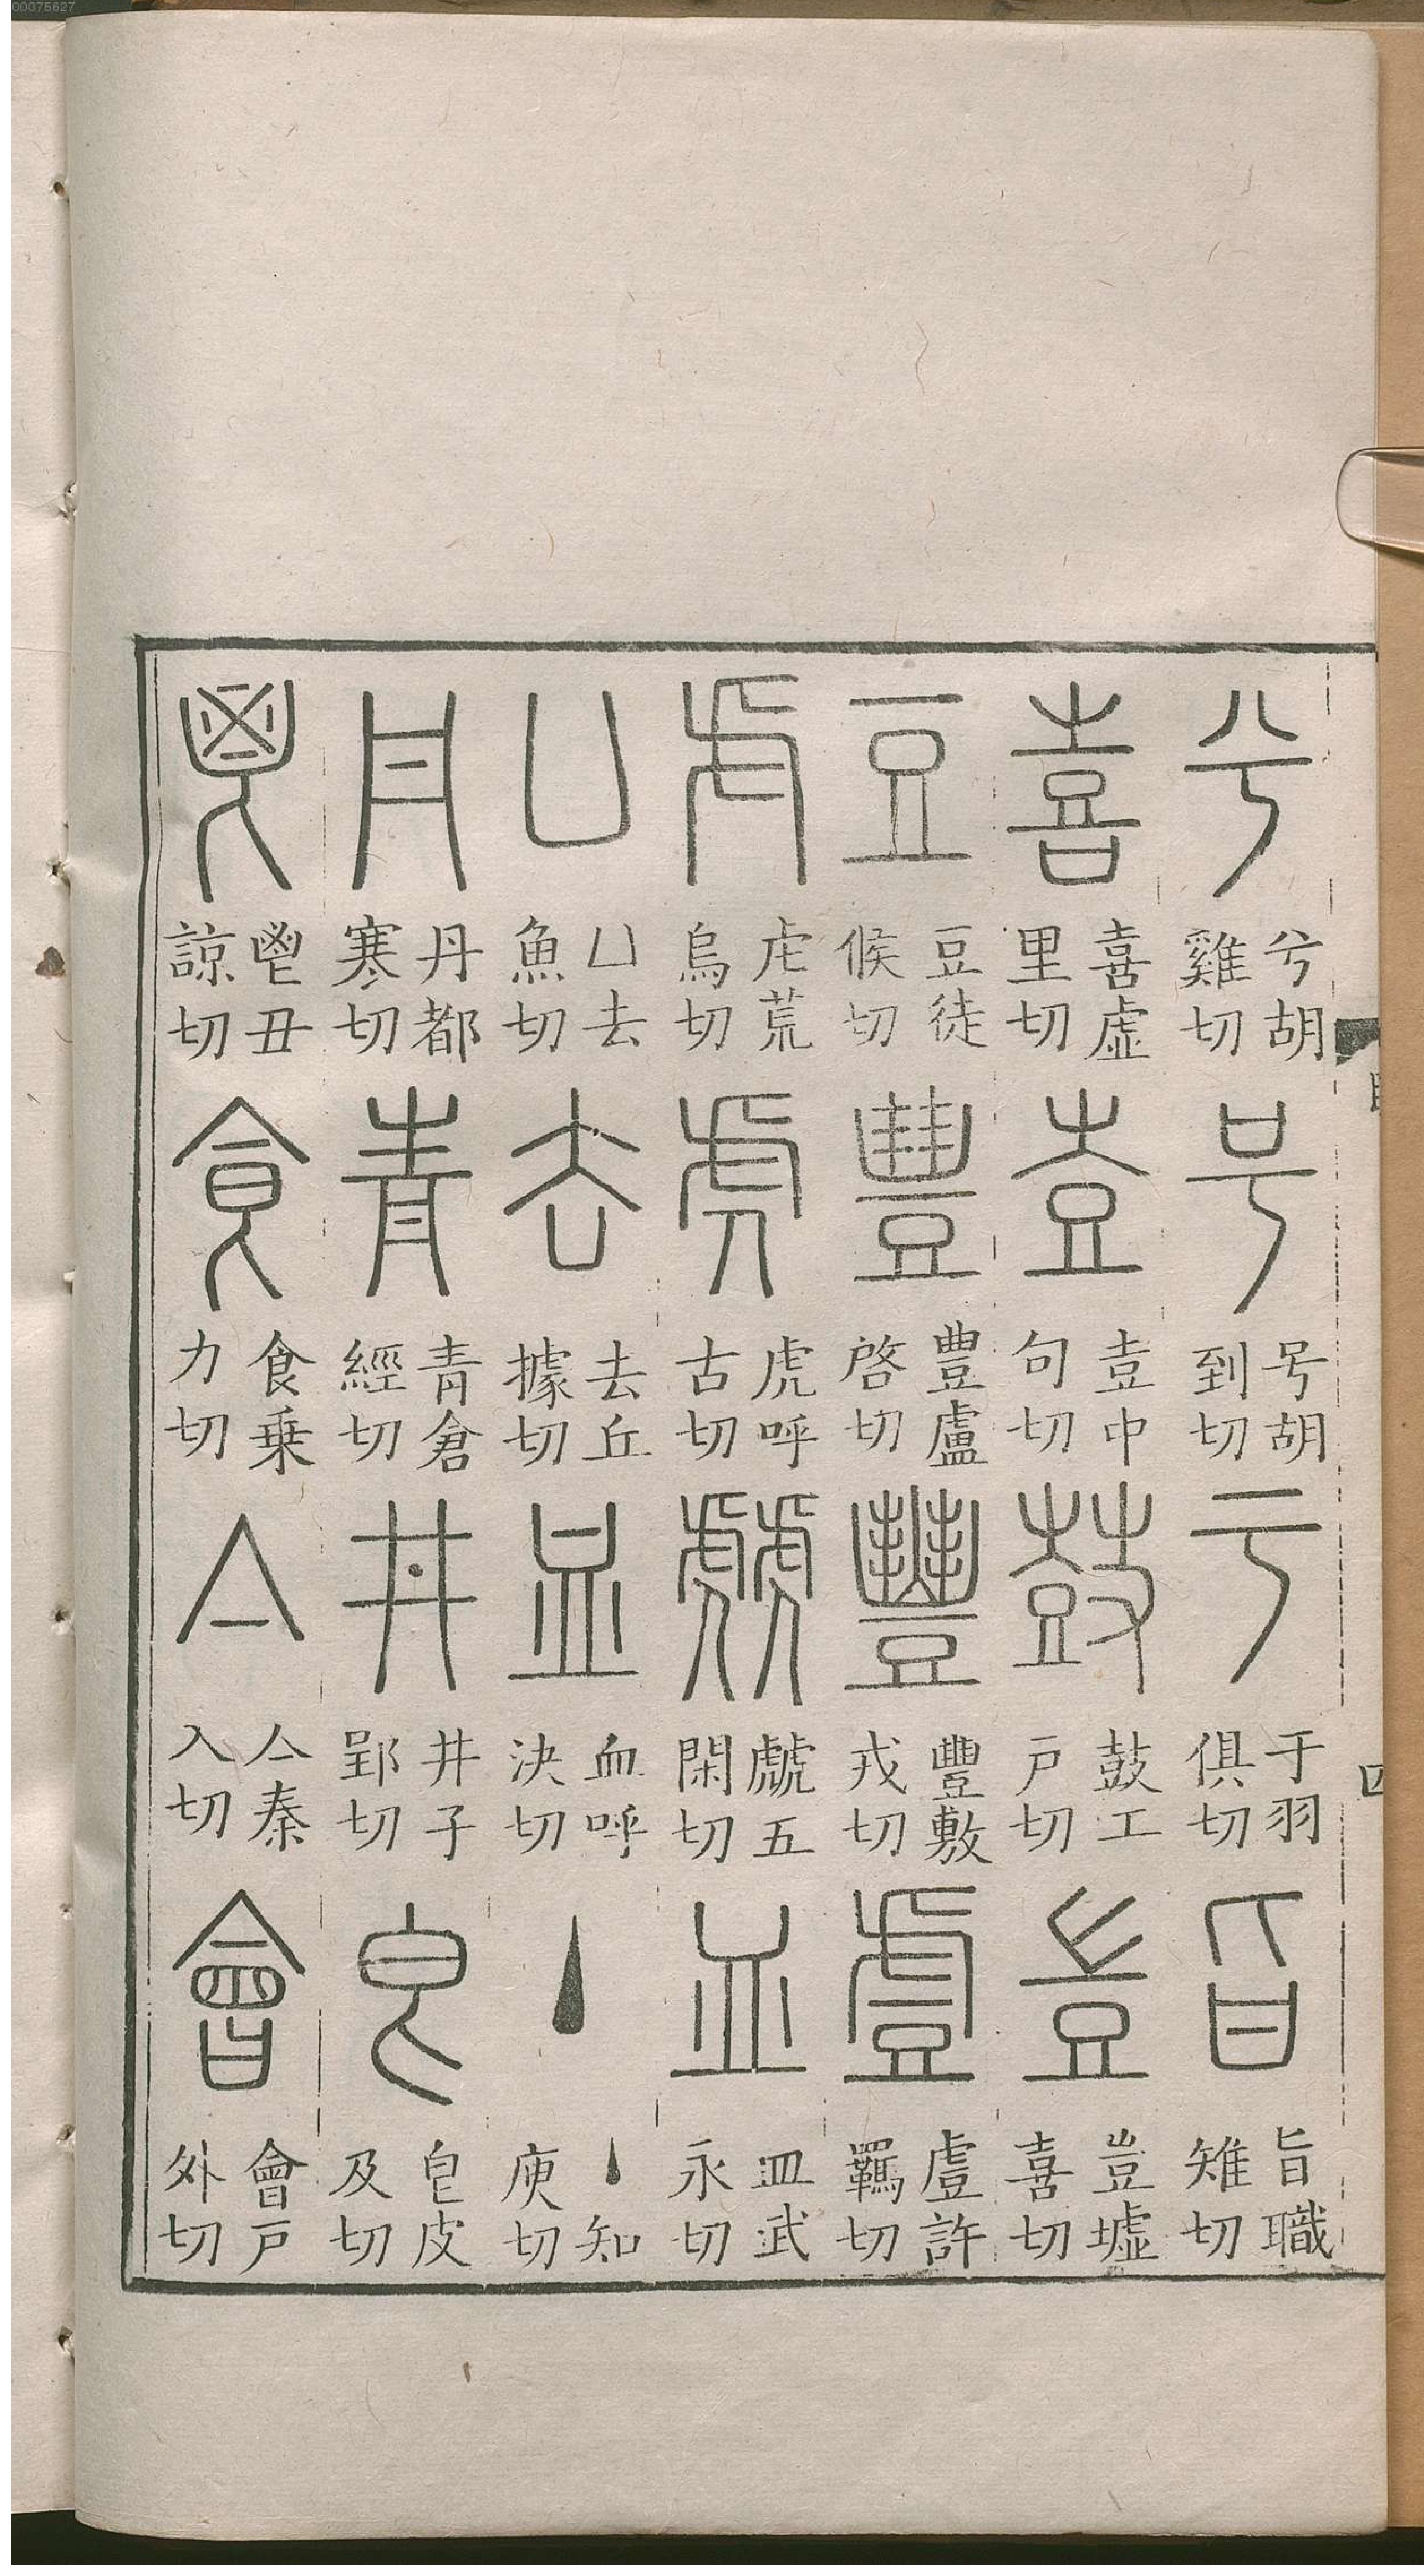 00075627
兮 兮胡雞切 号 号胡到切 亏 于羽俱切 旨 旨職雉切
喜 喜虛里切 壴 壴中句切 鼓 鼓工戶切 豈 豈墟喜切
豆 豆徒候切 豊 豊盧啓切 豐 豐敷戎切 䖒 䖒許羈切
虍 虍荒烏切 虎 虎呼古切 虤 虤五閑切 皿 皿武永切
凵 凵去魚切 去 去丘據切 血 血呼決切 丶 丶知庾切
丹 丹都寒切 青 青倉經切 井 井子郢切 皀 皀皮及切
鬯 鬯丑諒切 食 食乗力切 亼 亼秦入切 會 會戶外切